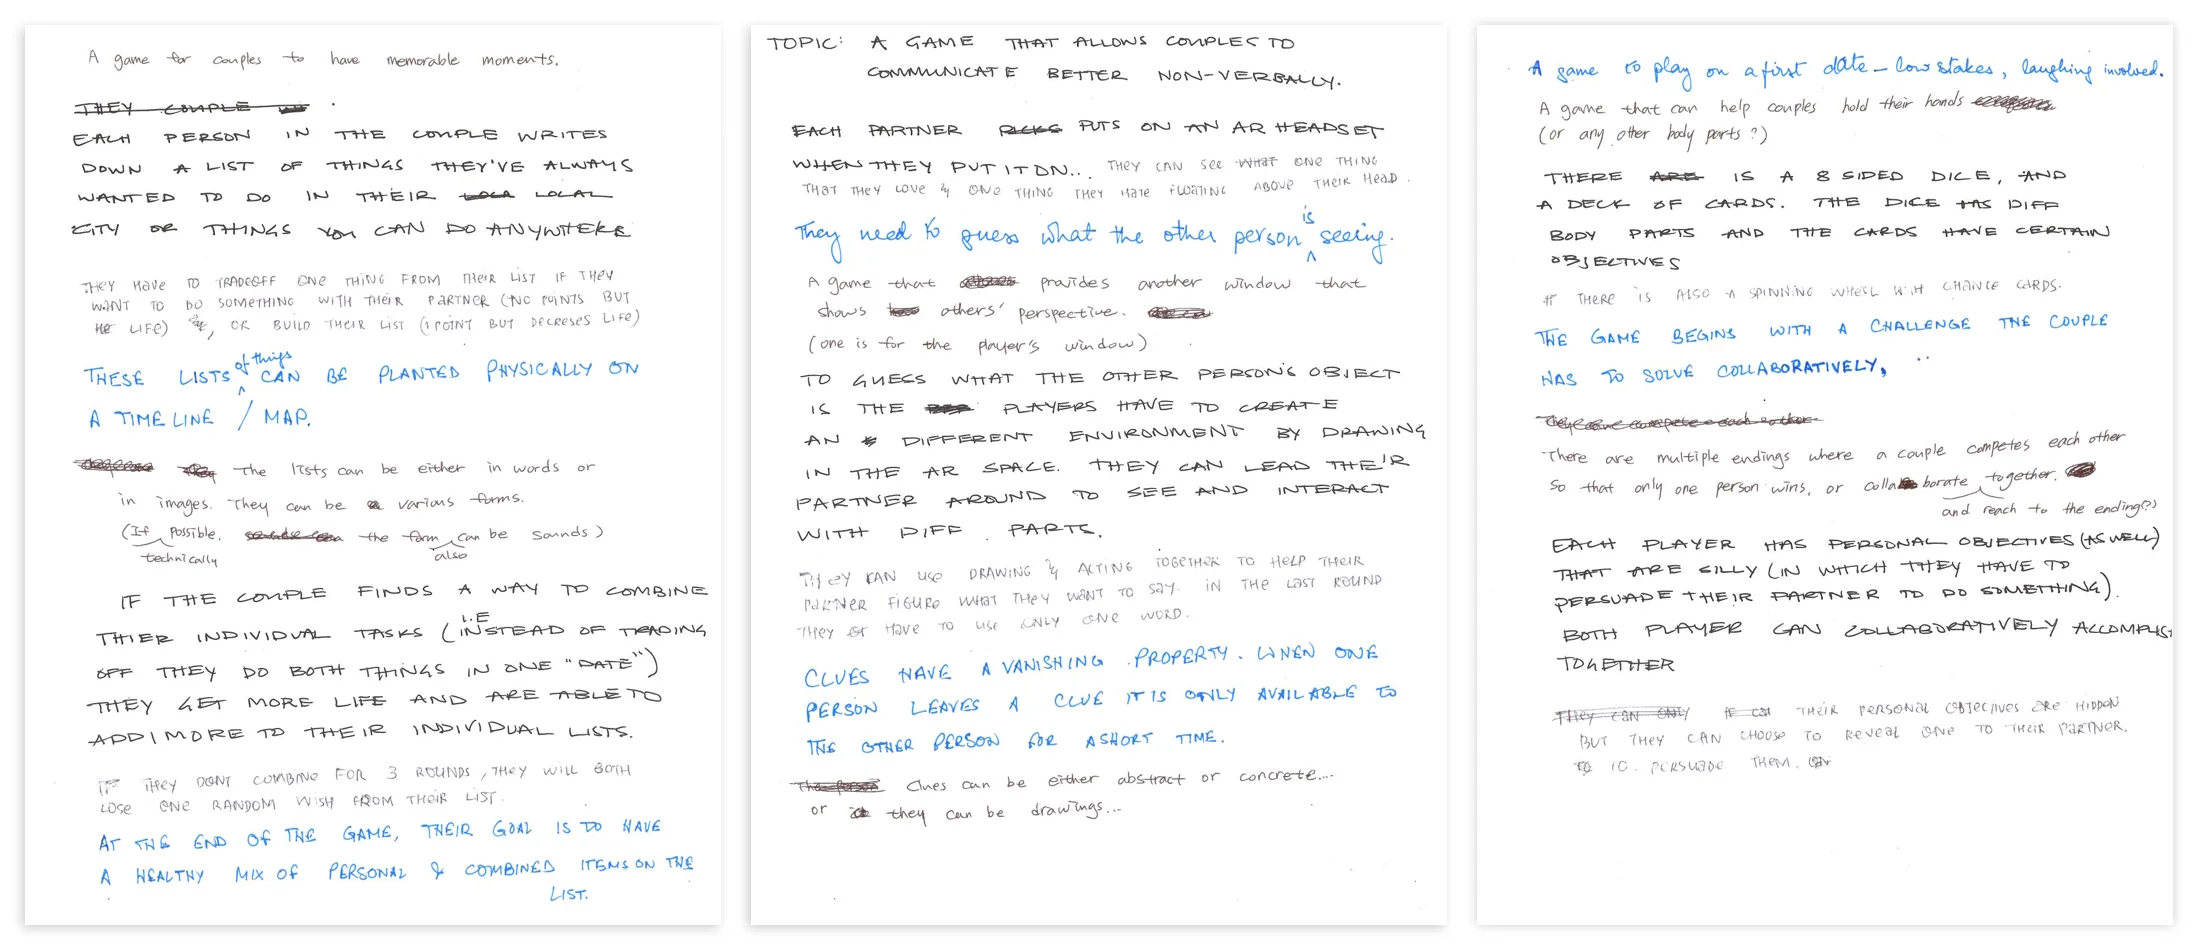 A game for couples to have memorable moments.
THEY COUPLE
EACH PERSON IN THE COUPLE WRITES
DOWN A LIST OF THINGS THEY'VE ALWAYS
WANTED TO DO IN THEIR LOCAL
CITY OR THINGS YOU CAN DO ANYWHERE
THEY HAVE TO TRADEOFF ONE THING FROM THEIR LIST IF THEY
WANT TO DO SOMETHING WITH THEIR PARTNER (NO POINTS BUT
LIFE), OR BUILD THEIR LIST (1 POINT BUT DECRESES LIFE)
of things
THESE LISTS CAN BE PLANTED PHYSICALLY ON
A TIMELINE / MAP.
The lists can be either in words or
in images. They can be various forms.
(If possible, the form can be sounds)
technically also
IF THE COUPLE FINDS A WAY TO COMBINE
I.E
THIER INDIVIDUAL TASKS (INSTEAD OF TRADING
OFF THEY DO BOTH THINGS IN ONE "DATE")
THEY GET MORE LIFE AND ARE ABLE TO
ADD 1 MORE TO THEIR INDIVIDUAL LISTS.
IF THEY DONT COMBINE FOR 3 ROUNDS, THEY WILL BOTH
LOSE ONE RANDOM WISH FROM THEIR LIST.
AT THE END OF THE GAME, THEIR GOAL IS TO HAVE
A HEALTHY MIX OF PERSONAL & COMBINED ITEMS ON THE
LIST.
TOPIC: A GAME THAT ALLOWS COUPLES TO
COMMUNICATE BETTER NON-VERBALLY.
EACH PARTNER PICKS PUTS ON AN AR HEADSET
WHEN THEY PUT IT ON... THEY CAN SEE WHAT ONE THING
THAT THEY LOVE & ONE THING THEY HATE FLOATING ABOVE THEIR HEAD.
is
They need to guess what the other person seeing.
A game that provides another window that
shows others' perspective.
(one is for the player's window)
TO GUESS WHAT THE OTHER PERSON'S OBJECT
IS THE PLAYERS HAVE TO CREATE
AN DIFFERENT ENVIRONMENT BY DRAWING
IN THE AR SPACE. THEY CAN LEAD THEIR
PARTNER AROUND TO SEE AND INTERACT
WITH DIFF PARTS.
THEY CAN USE DRAWING & ACTING TOGETHER TO HELP THEIR
PARTNER FIGURE WHAT THEY WANT TO SAY. IN THE LAST ROUND
THEY HAVE TO USE ONLY ONE WORD.
CLUES HAVE A VANISHING PROPERTY. WHEN ONE
PERSON LEAVES A CLUE IT IS ONLY AVAILABLE TO
THE OTHER PERSON FOR A SHORT TIME.
The person Clues can be either abstract or concrete....
or they can be drawings...
A game to play on a first date - low stakes, laughing involved.
A game that can help couples hold their hands
(or any other body parts?)
THERE ARE IS A 8 SIDED DICE, AND
A DECK OF CARDS. THE DICE HAS DIFF
BODY PARTS AND THE CARDS HAVE CERTAIN
OBJECTIVES
THERE IS ALSO A SPINNING WHEEL WITH CHANCE CARDS.
THE GAME BEGINS WITH A CHALLENGE THE COUPLE
HAS TO SOLVE COLLABORATIVELY,
They are compete each other
There are multiple endings where a couple competes each other
so that only one person wins, or collaborate together.
and reach to the ending(?)
EACH PLAYER HAS PERSONAL OBJECTIVES (AS WELL)
THAT ARE SILLY (IN WHICH THEY HAVE TO
PERSUADE THEIR PARTNER TO DO SOMETHING).
BOTH PLAYER CAN COLLABORATIVELY ACCOMPLISH
TOGETHER
THEY CAN ONLY THEIR PERSONAL OBJECTIVES ARE HIDDEN
BUT THEY CAN CHOOSE TO REVEAL ONE TO THEIR PARTNER.
TO PERSUADE THEM.